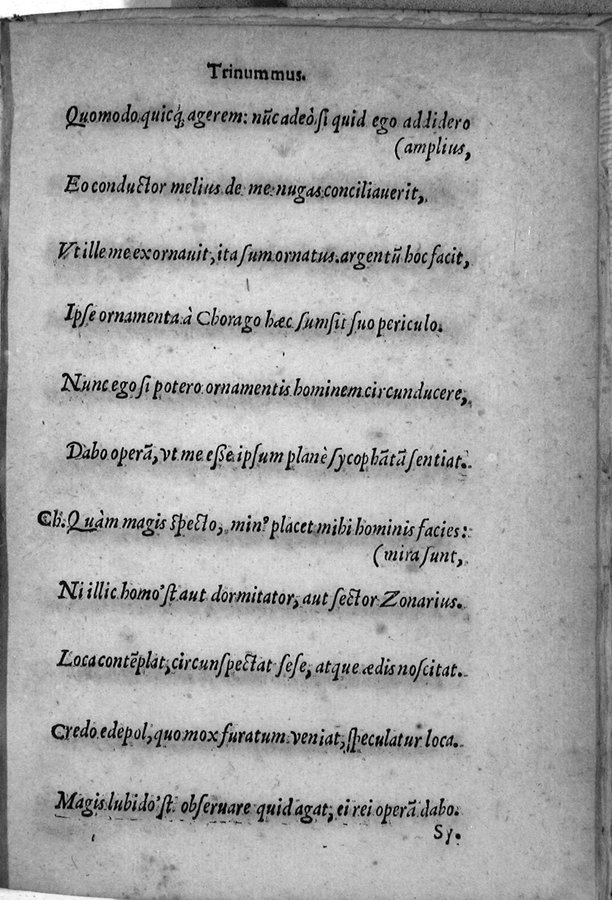 Trinummus.
Quomodo quicq́; agerem: nũc adeò si quid ego addidero
(amplius,
Eo conductor melius de me nugas conciliauerit,
Vt ille me exornauit, ita sum ornatus. argentũ hoc facit,
Ipse ornamenta à Chorago hæc sumsit suo periculo.
Nunc ego si potero ornamentis hominem circunducere,
Dabo operã, vt me esse ipsum planè sycophãtã sentiat.
Ch. Quàm magis specto, minꝰ placet mihi hominis facies:
(mira sunt,
Ni illic homo'st aut dormitator, aut sector Zonarius.
Loca contẽplat, circunspectat sese, atque ædis noscitat.
Credo edepol, quo mox furatum veniat, speculatur loca.
Magis lubido'st obseruare quid agat; ei rei operã dabo.
Sy.